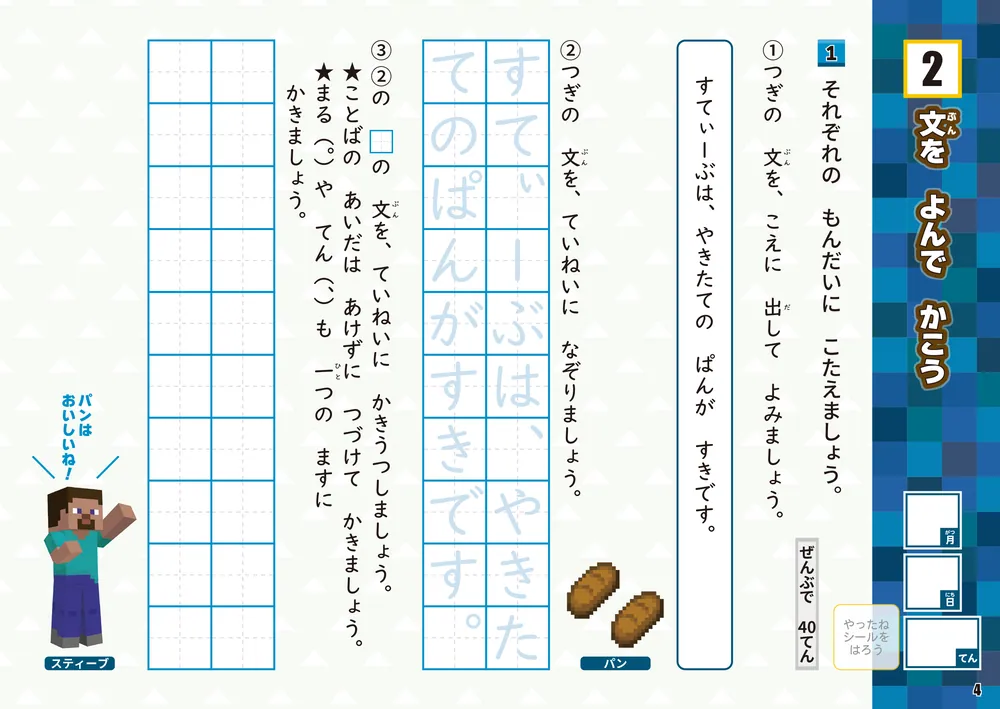 2
文を よんで かこう
ぶん
月
がつ
日
にち
てん
やったね
シールを
はろう
ぜんぶで 40てん
1 それぞれの もんだいに こたえましょう。
①つぎの 文を、こえに 出して よみましょう。
ぶん
だ
すてぃーぶは、やきたての ぱんが すきです。
②つぎの 文を、ていねいに なぞりましょう。
ぶん
パン
すてぃーぶは、やきた
てのぱんがすきです。
③②の □の 文を、ていねいに かきうつしましょう。
ぶん
★ことばの あいだは あけずに つづけて かきましょう。
★まる(。)や てん(、)も 一つの ますに
ひと
かきましょう。
パンは
おいしいね!
スティーブ
4